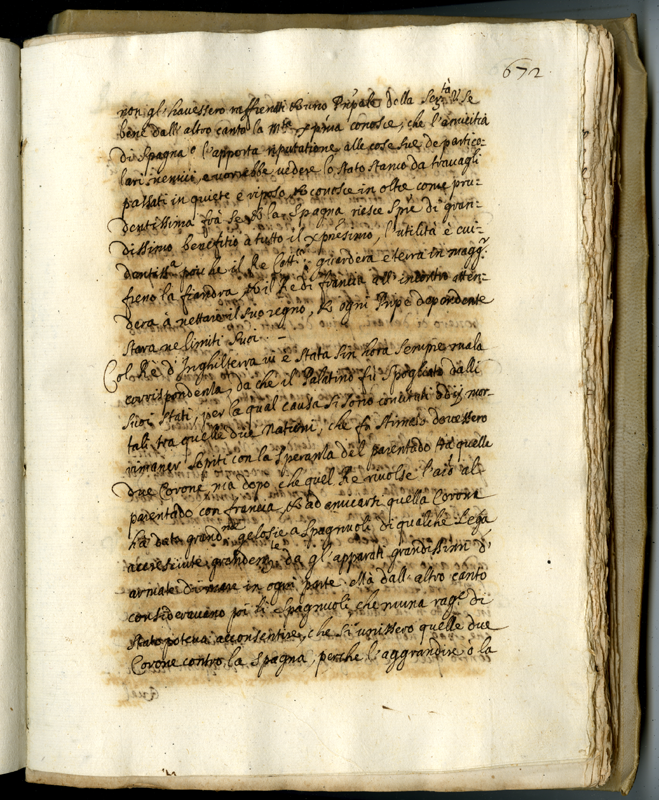 672
non gl'havessero raffrenati & uno Prīpale della Sertà V. Se
bene dall'altro canto la Mtà xp̄ma conosce, che l'amicitia
di Spagna l'apporta riputatione alle cose sue de partico-
lari, e vorrebbe vedere lo stato stanco da travagli
passati in quiete e riposo, & conosce in oltre come pru-
dentissima frà se & la Spagna riesce di gran-
dissimo benefitio a tutto il xp̄nesimo, l'utilità è evi-
dentissa poi che il Re guarderà e terrà in maggr
freno la fiandra, & il Re di francia all'incontro atten-
derà à nettare il suo regno, & ogni Prīpe dependente
starà ne limiti suoi. –
Col Re d'Inghilterra vi è stata sin hora sempre mala
corrispondenza, da che il Palatino fù spogliato dalli
suoi stati, per la qual causa si sono odij mor-
tali tra quelle due Nationi, che si stimò dovessero
rimaner sopiti con la speranza del parentado trà quelle
due Corone, ma dopo che quel Re rivolse l'aīo al
parentado con francia, & ad unicarsi quella Corona
hà dato grandme gelosie a Spagnuoli di qualche Lega
accresciute grandemte da gl'apparati grandissimi d'
armate di mare in ogni parte. Mà dall'altro canto
consideravano poi li Spagnuoli, che niuna rage di
stato poteva acconsentire, che si unissero quelle due
Corone contro la Spagna, perche l'aggrandire o la